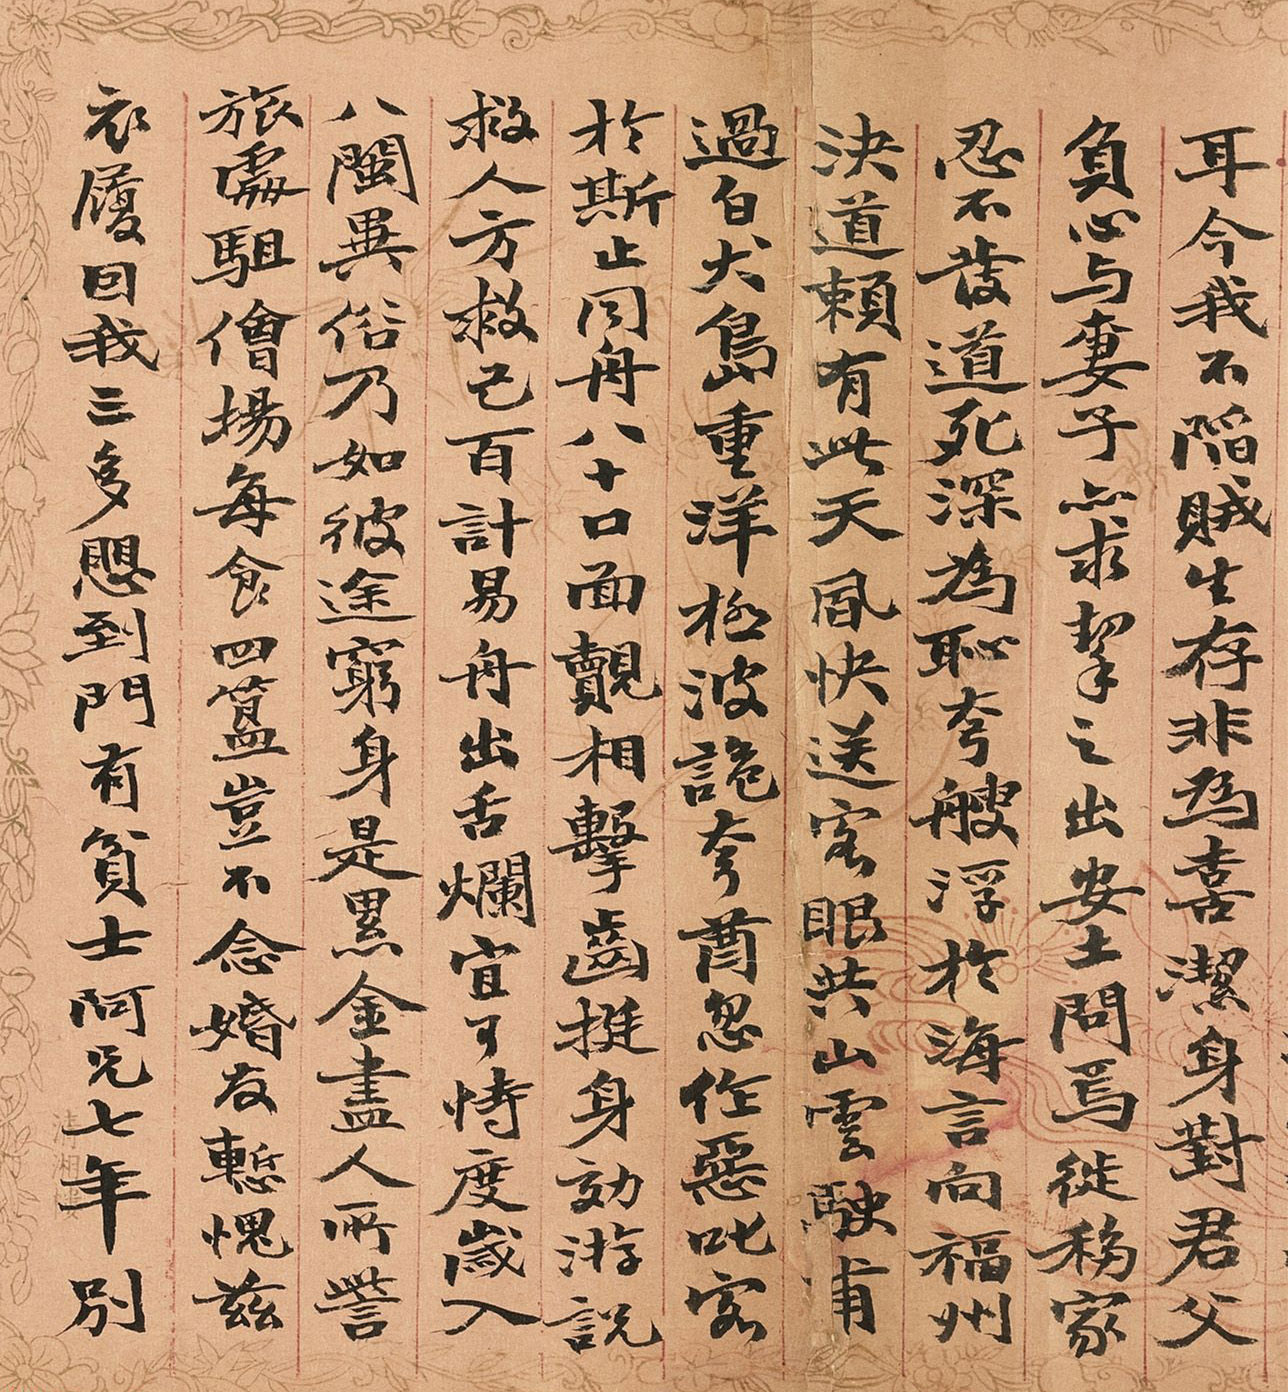 耳今我不陷賊生存非為喜潔身對君父
負心与妻子亦求挈之出安土問焉徙移家
忍不發道死深為恥夸艘浮於海言向福州
決道賴有此天風快送客眼共山雲駛甫
過白犬島重洋極波詭夸酋忽作惡叱客
於斯止同舟八十口面覿相擊齒挺身効游說
救人方救己百計易舟出舌爛宜可恃度歲入
八閩異俗乃如彼途窮身是累金盡人所訾
旅處駔儈場每食四簋豈不念婚友慙愧茲
衣履回我三多愳到門有貧士阿兄七年別